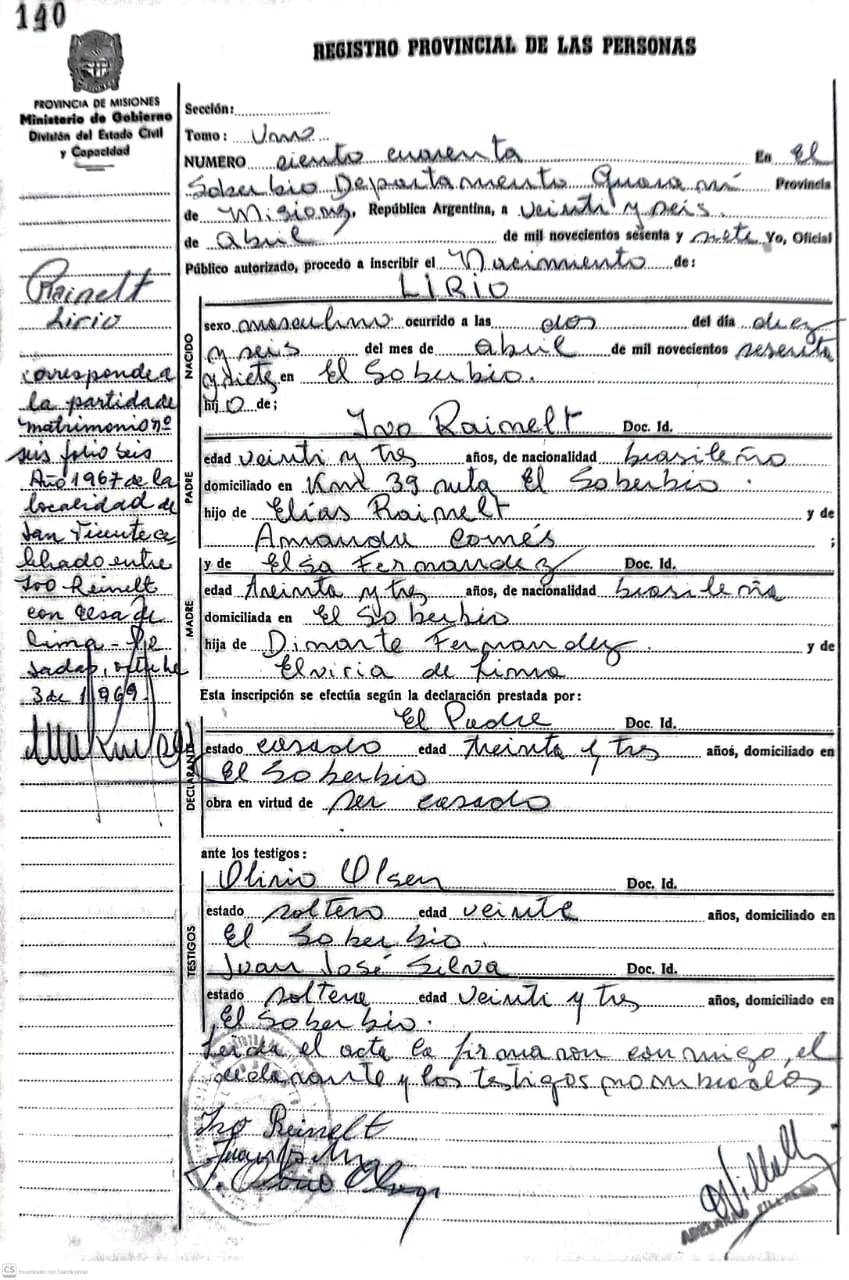 140
REGISTRO PROVINCIAL DE LAS PERSONAS
PROVINCIA DE MISIONES
Ministerio de Gobierno
División del Estado Civil
y Capacidad
Rainelt
Lirio
corresponde a
la partida de
matrimonio nº
seis folio seis
Año 1967 de la
localidad de
San Vicente ce
lebrado entre
Ivo Reinelt
con Elsa de
Lima
3 de 1969
Sección:
Tomo: Uno
NUMERO siento cuarenta En El
Soberbio Departamento Guaraní Provincia
de Misiones, República Argentina, a veinti y seis
de abril de mil novecientos sesenta y siete Yo, Oficial
Público autorizado, procedo a inscribir el Nacimiento de:
LIRIO
NACIDO
sexo masculino ocurrido a las dos del día diez
y seis del mes de abril de mil novecientos sesenta
y siete en El Soberbio.
hijo de;
PADRE
Ivo Rainelt Doc. Id.
edad veinti y tres años, de nacionalidad brasileño
domiciliado en Km 39 ruta El Soberbio.
hijo de Elías Rainelt y de
Comés ;
MADRE
y de Elsa Fernandez Doc. Id.
edad treinta y tres años, de nacionalidad brasileña
domiciliada en El Soberbio
hija de Dimarte Fernandez. y de
Elviria de Lima
Esta inscripción se efectúa según la declaración prestada por:
DECLARANTE
El Padre Doc. Id.
estado casado edad treinta y tres años, domiciliado en
El Soberbio
obra en virtud de ser casado
ante los testigos:
TESTIGOS
Olirio Olsen Doc. Id.
estado soltero edad veinte años, domiciliado en
El Soberbio.
Juan José Silva Doc. Id.
estado soltero edad veinti y tres años, domiciliado en
El Soberbio.
Leida el acta la firman con migo, el
declarante y los testigos nombrados
Ivo Reinelt
CS Escaneado con CamScanner